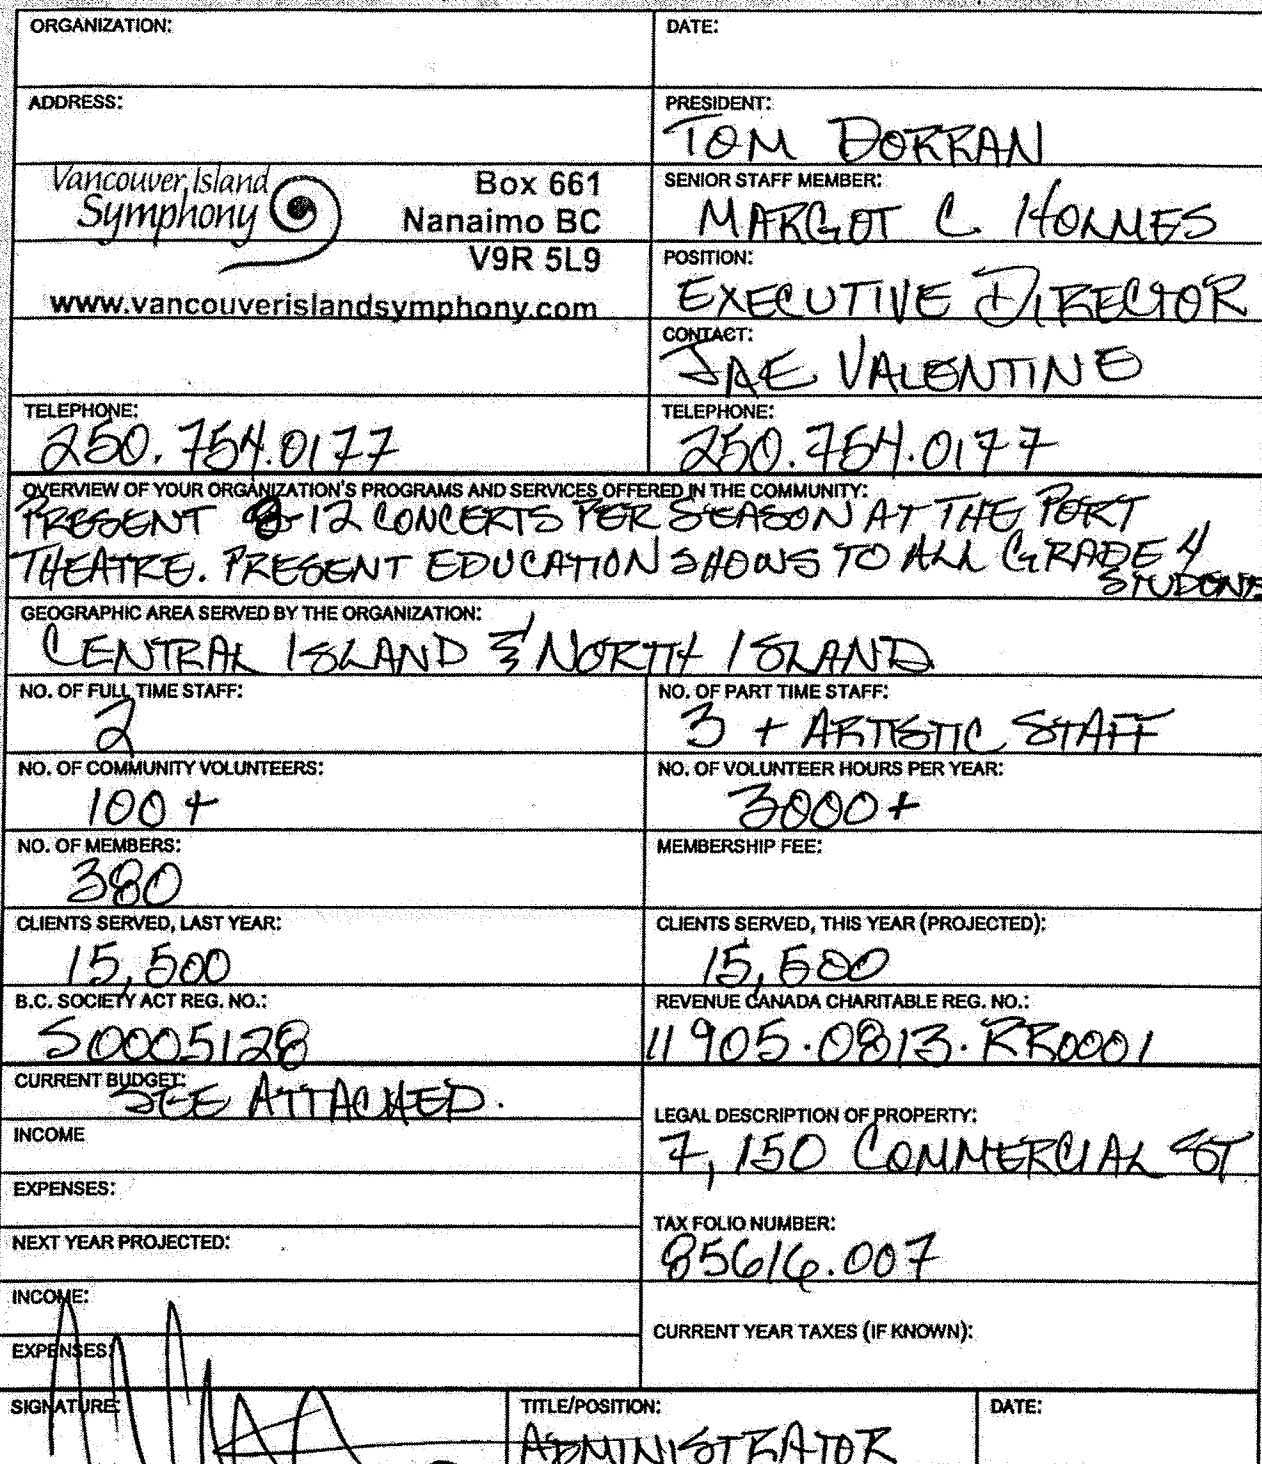 ORGANIZATION:
DATE:
ADDRESS:
PRESIDENT:
TOM DORRAN
Vancouver Island
Symphony
Box 661
Nanaimo BC
V9R 5L9
www.vancouverislandsymphony.com
SENIOR STAFF MEMBER:
MARGOT C. HOLMES
POSITION:
EXECUTIVE DIRECTOR
CONTACT:
JAE VALENTINE
TELEPHONE:
250.754.0177
TELEPHONE:
250.754.0177
OVERVIEW OF YOUR ORGANIZATION'S PROGRAMS AND SERVICES OFFERED IN THE COMMUNITY:
PRESENT 8-12 CONCERTS PER SEASON AT THE PORT
THEATRE. PRESENT EDUCATION SHOWS TO ALL GRADE 4
STUDENTS
GEOGRAPHIC AREA SERVED BY THE ORGANIZATION:
CENTRAL ISLAND & NORTH ISLAND
NO. OF FULL TIME STAFF:
2
NO. OF PART TIME STAFF:
3 + ARTISTIC STAFF
NO. OF COMMUNITY VOLUNTEERS:
100+
NO. OF VOLUNTEER HOURS PER YEAR:
3000+
NO. OF MEMBERS:
380
MEMBERSHIP FEE:
CLIENTS SERVED, LAST YEAR:
15,500
CLIENTS SERVED, THIS YEAR (PROJECTED):
15,500
B.C. SOCIETY ACT REG. NO.:
S0005128
REVENUE CANADA CHARITABLE REG. NO.:
11905.0813.RR0001
CURRENT BUDGET:
SEE ATTACHED.
LEGAL DESCRIPTION OF PROPERTY:
7, 150 COMMERCIAL ST
INCOME
EXPENSES:
TAX FOLIO NUMBER:
85616.007
NEXT YEAR PROJECTED:
INCOME:
CURRENT YEAR TAXES (IF KNOWN):
EXPENSES:
SIGNATURE:
TITLE/POSITION:
ADMINISTRATOR
DATE: